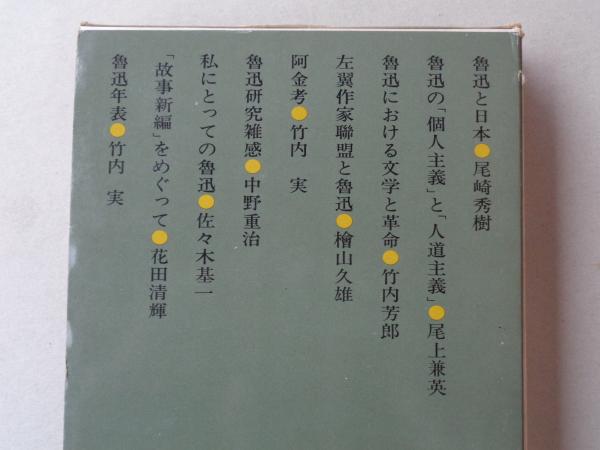 魯迅と日本●尾崎秀樹
魯迅の「個人主義」と「人道主義」●尾上兼英
魯迅における文学と革命●竹内芳郎
左翼作家聯盟と魯迅●檜山久雄
阿金考●竹内 実
魯迅研究雑感●中野重治
私にとっての魯迅●佐々木基一
「故事新編」をめぐって●花田清輝
魯迅年表●竹内 実